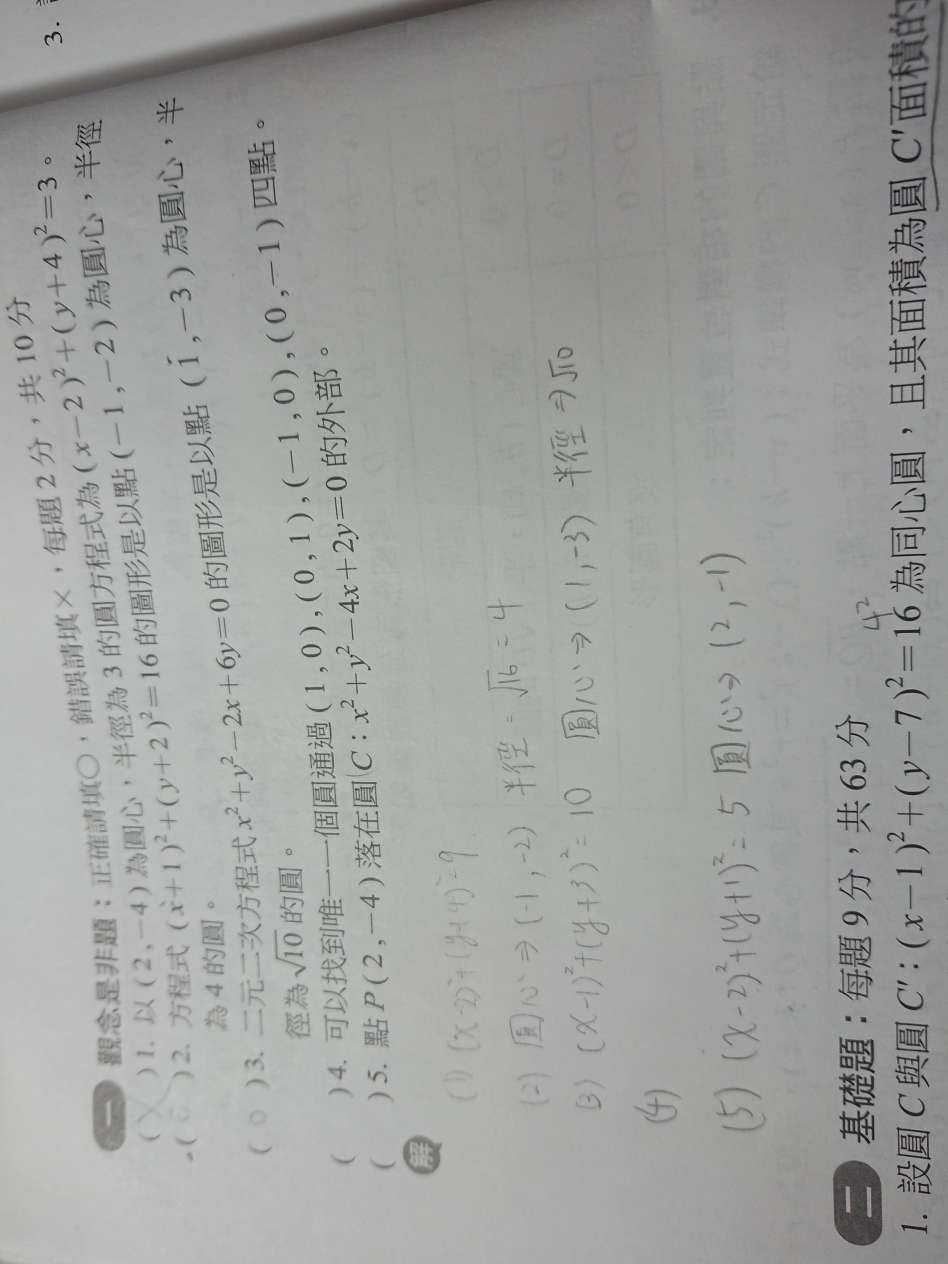 3.
一 觀念是非題：正確請填○，錯誤請填×，每題2分，共10分
(×)1. 以(2,−4)為圓心，半徑為3的圓方程式為(x−2)²+(y+4)²=3。
(○)2. 方程式(x+1)²+(y+2)²=16的圖形是以點(−1,−2)為圓心，半徑
為4的圓。
(○)3. 二元二次方程式x²+y²−2x+6y=0的圖形是以點(1,−3)為圓心，半
徑為√10的圓。
( )4. 可以找到唯一一個圓通過(1,0),(0,1),(−1,0),(0,−1)四點。
( )5. 點P(2,−4)落在圓C：x²+y²−4x+2y=0的外部。
解
(1) (x-2)²+(y+4)²=9
(2) 圓心⇒(-1,-2) 半徑=√16=4
(3) (x-1)²+(y+3)²=10 圓心⇒(1,-3) 半徑⇒√10
(4)
(5) (x-2)²+(y+1)²=5 圓心⇒(2,-1)
二 基礎題：每題9分，共63分
4²
1. 設圓C與圓C′：(x−1)²+(y−7)²=16為同心圓，且其面積為圓C′面積的